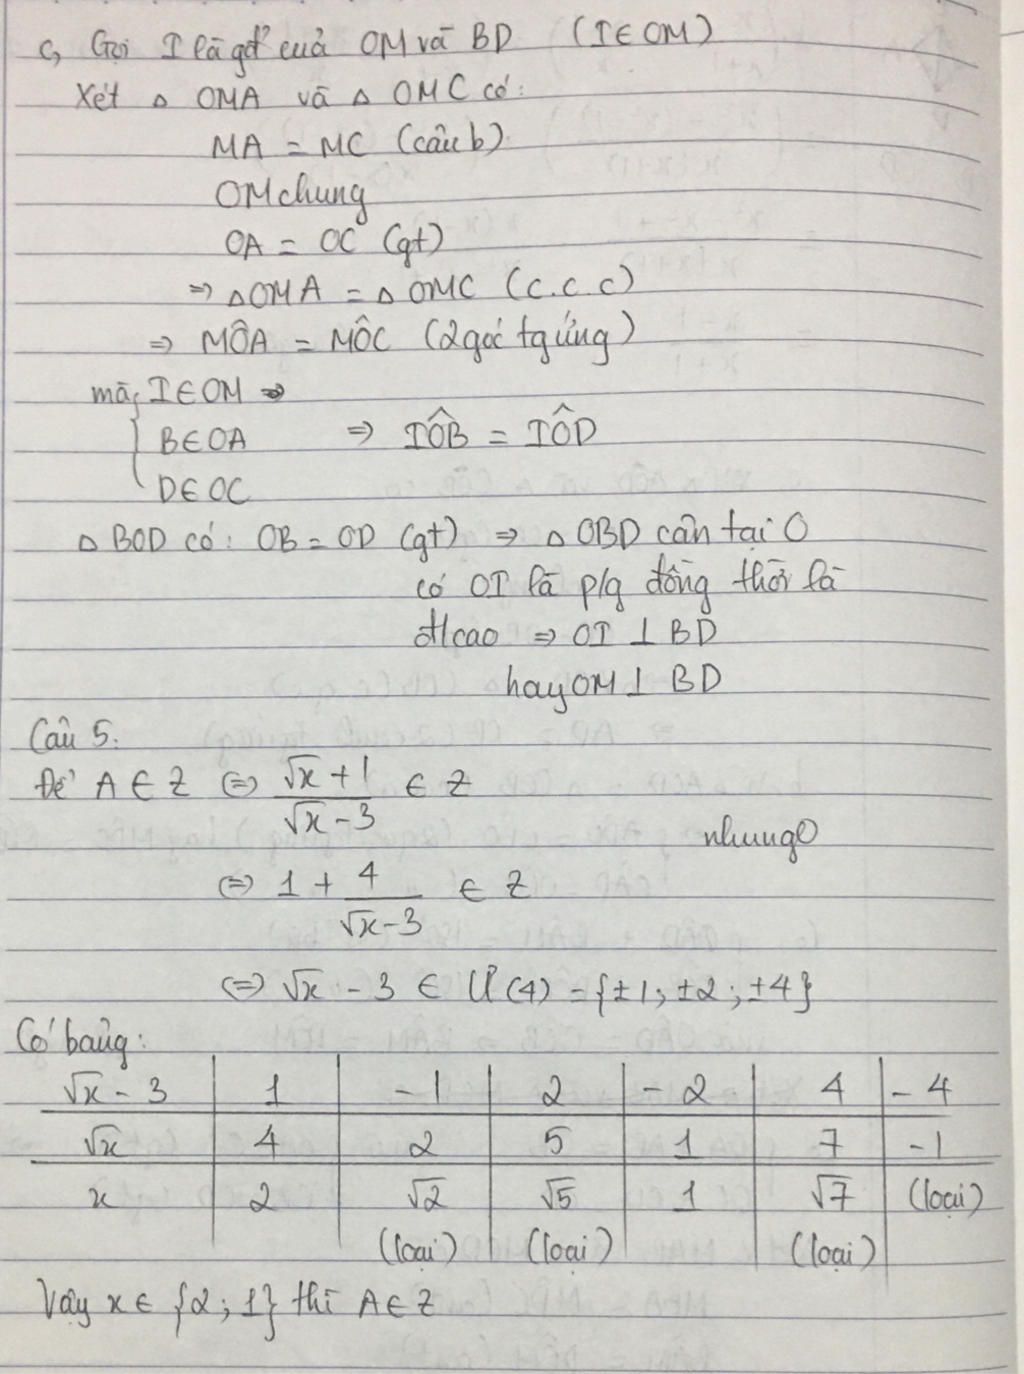 c, Gọi I là gđ' của OM và BD (I∈OM)
Xét △ OMA và △ OMC có:
MA = MC (câu b)
OM chung
OA = OC (gt)
⇒ △OMA = △ OMC (c.c.c)
⇒ MÔA = MÔC (2 góc tg ứng)
mà, I∈OM ⇒
B∈OA ⇒ IÔB = IÔD
D∈OC
△ BOD có: OB = OD (gt) ⇒ △ OBD cân tại O
có OI là p/g đồng thời là
đ/cao ⇒ OI ⊥ BD
hay OM ⊥ BD
Câu 5.
Để A ∈ Z ⇔ (√x + 1)/(√x - 3) ∈ Z
nhung
⇔ 1 + 4/(√x - 3) ∈ Z
⇔ √x - 3 ∈ Ư(4) = {±1; ±2; ±4}
Có bảng:
√x - 3 | 1 | -1 | 2 | -2 | 4 | -4
√x | 4 | 2 | 5 | 1 | 7 | -1
x | 2 | √2 | √5 | 1 | √7 | (loại)
(loại) (loại) (loại)
Vậy x ∈ {2; 1} thì A ∈ Z